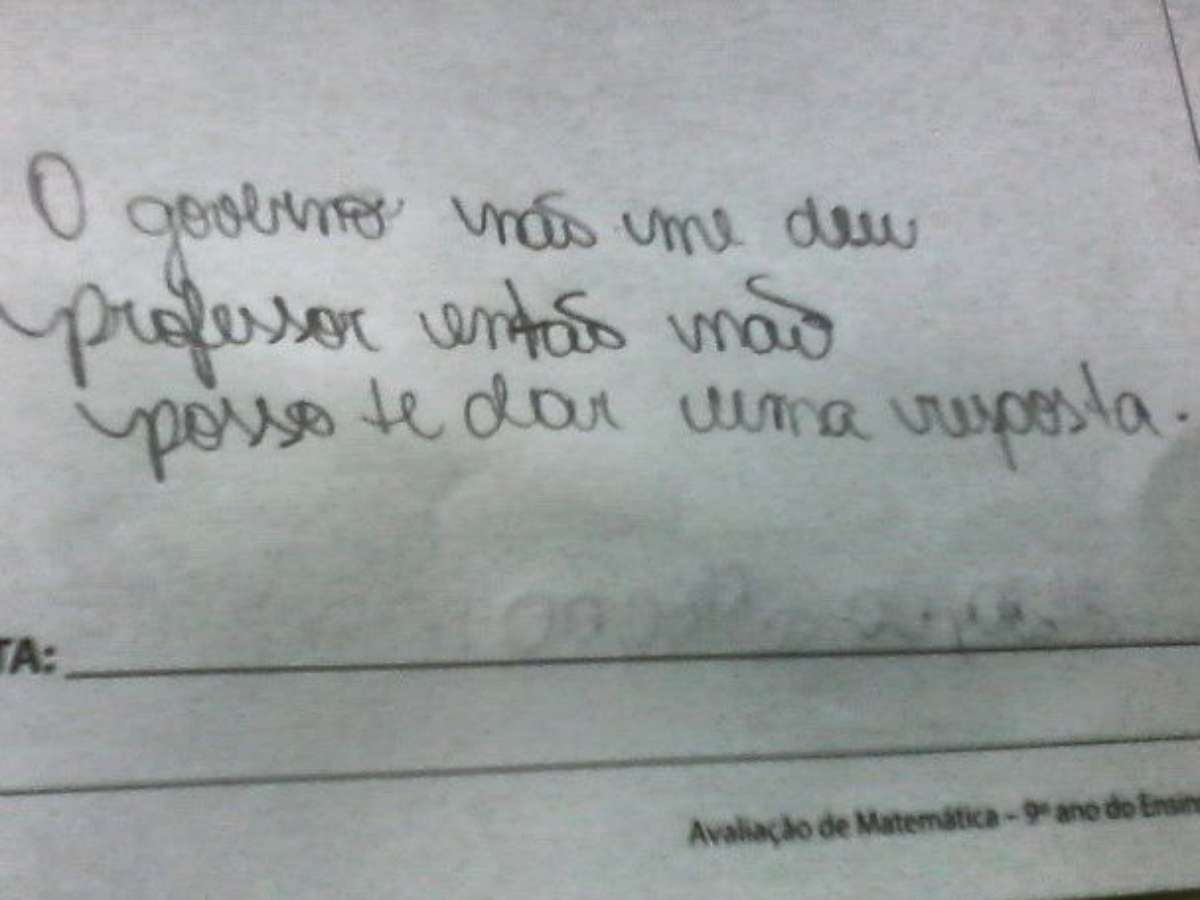 O governo não me deu
professor então não
posso te dar uma resposta.
TA:
Avaliação de Matemática – 9º ano do Ensin